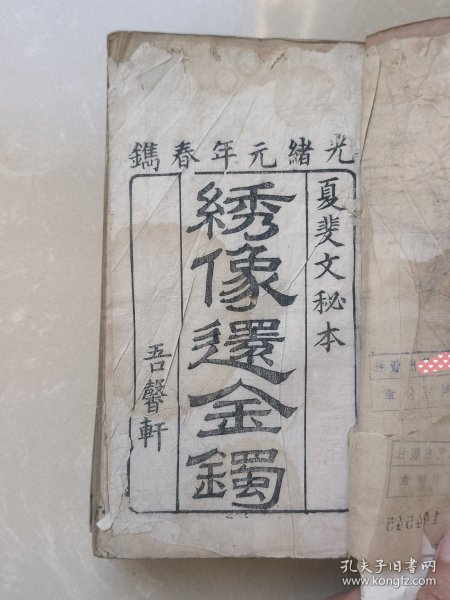 光緒元年春鐫
夏斐文秘本
綉像還金鐲
吾馨軒
194545
孔夫子旧书网
www.kongfz.com